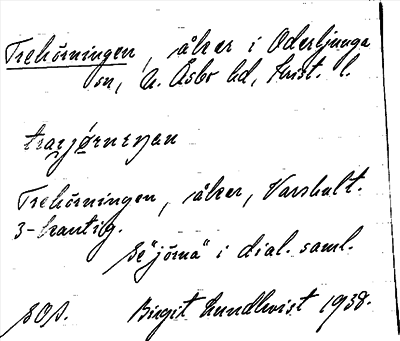 Trehörningen, åker i Oderljunga
sn, N. Åsbo hd, Krist. l.
Trehörningen, åker, Varshult.
3-kantig.
Se "jörna" i dial. saml.
SOS. Birgit Lundkvist 1938.